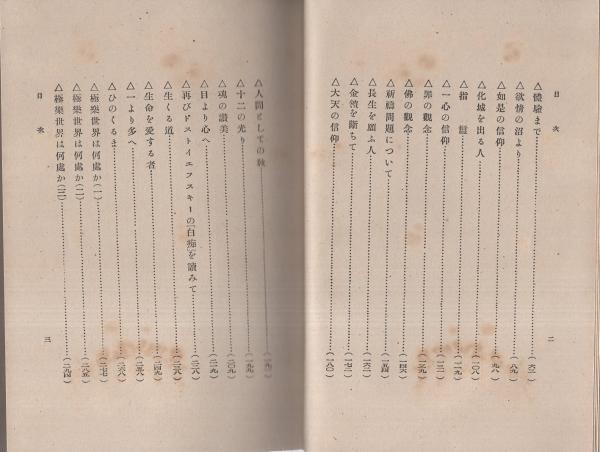 目次
△體驗まで……(六一)
△欲情の沼より……(八九)
△如是の信仰……(九八)
△化城を出る人……(一〇八)
△指鬘……(一一九)
△一心の信仰……(一三一)
△罪の觀念……(一三九)
△佛の觀念……(一四六)
△祈禱問題について……(一五四)
△長生を願ふ人……(一六一)
△金鎖を斷ちて……(一七一)
△大天の信仰……(一八〇)
二
目次
△人間としての執……
△十二の光り……(一九九)
△魂の讃美……(二〇九)
△目より心へ……(二一九)
△再びドストイエフスキーの『白痴』を讀みて……(二二八)
△生くる道……(二三八)
△生命を愛する者……(二四九)
△一より多へ……(二五八)
△ひのくるま……(二六八)
△極樂世界は何處か(一)……(二七七)
△極樂世界は何處か(二)……(二八五)
△極樂世界は何處か(三)……(二九四)
三